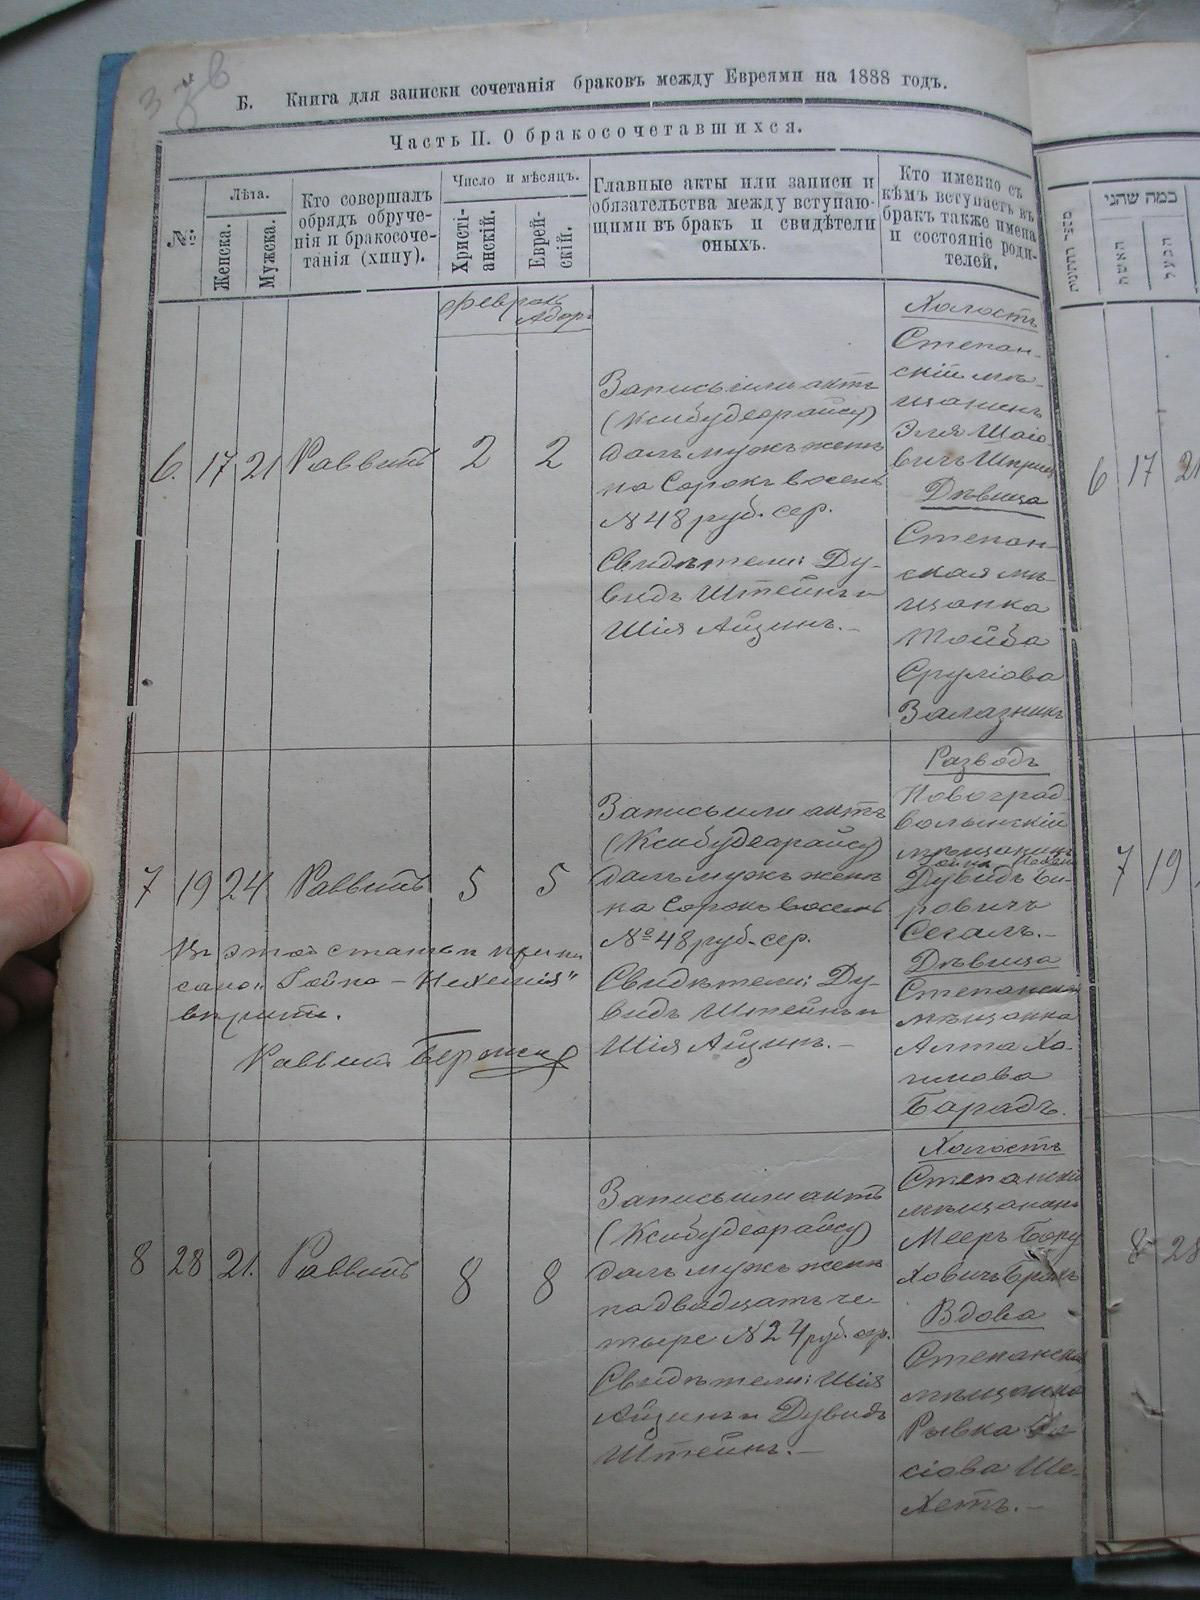 Б. Книга для записки сочетанія браковъ между Евреями на 1888 годъ.
Часть II. О бракосочетавшихся.
№
Лѣта.
Женска.
Мужска.
Кто совершалъ
обрядъ обруче-
нія и бракосоче-
танія (хипу).
Число и мѣсяцъ.
Христі-
анскій.
Еврей-
скій.
Главные акты или записи и
обязательства между вступаю-
щими въ бракъ и свидѣтели
оныхъ.
Кто именно съ
кѣмъ вступаетъ въ
бракъ также имена
и состояніе роди-
телей.
Феврал
Адор
6. 17 21 Раввинъ 2 2
Запись или актъ
(Ксибудеорайсу)
далъ мужъ женѣ
на Сорокъ восемь
№ 48 руб. сер.
Свидѣтели: Ду-
видъ Штейнъ и
Шія Айзинъ.-
Холостъ
Степан-
скій мѣ-
щанинъ
Эля Шаіо-
вичъ
Дѣвица
Степан-
ская мѣ-
щанка
Тойба
Сруліова
Залазникъ
7 19 24 Раввинъ 5 5
Запись или актъ
(Ксибудеорайсу)
далъ мужъ женѣ
на Сорокъ восемь
№ 48 руб. сер.
Свидѣтели: Ду-
видъ Штейнъ и
Шія Айзинъ.-
Разводъ
Новоград
волынскій
мѣщанинъ
Дувидъ Бе-
ровичъ
Сегалъ.-
Дѣвица
Степанская
мѣщанка
Алта Ха-
имова
Барадъ.
Въ этой статьи припи
сано
вѣрить.
Раввинъ
8 28 21. Раввинъ 8 8
Запись или актъ
(Ксибудеорайсу)
далъ мужъ женѣ
на двадцать че-
тыре № 24 руб. сер.
Свидѣтели: Шія
Айзинъ и Дувидъ
Штейнъ.-
Холостъ
Степанскій
мѣщанинъ
Мееръ Бору
ховичъ
Вдова
Степанская
мѣщанка
Рывка
сіова Ше-
хетъ.-
כמה שהני
האשה
הבעל
6 17 21
7 19
8 28